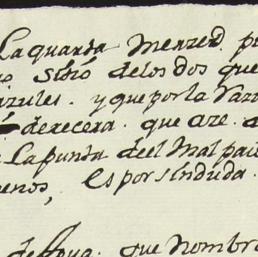 La quarta Merzed. p
sitio delos dos que
azules. y que por la razo
derecera. que aze.
La punta deel Mal pais
menos, Es por sinduda.
de Agua. que Nombra